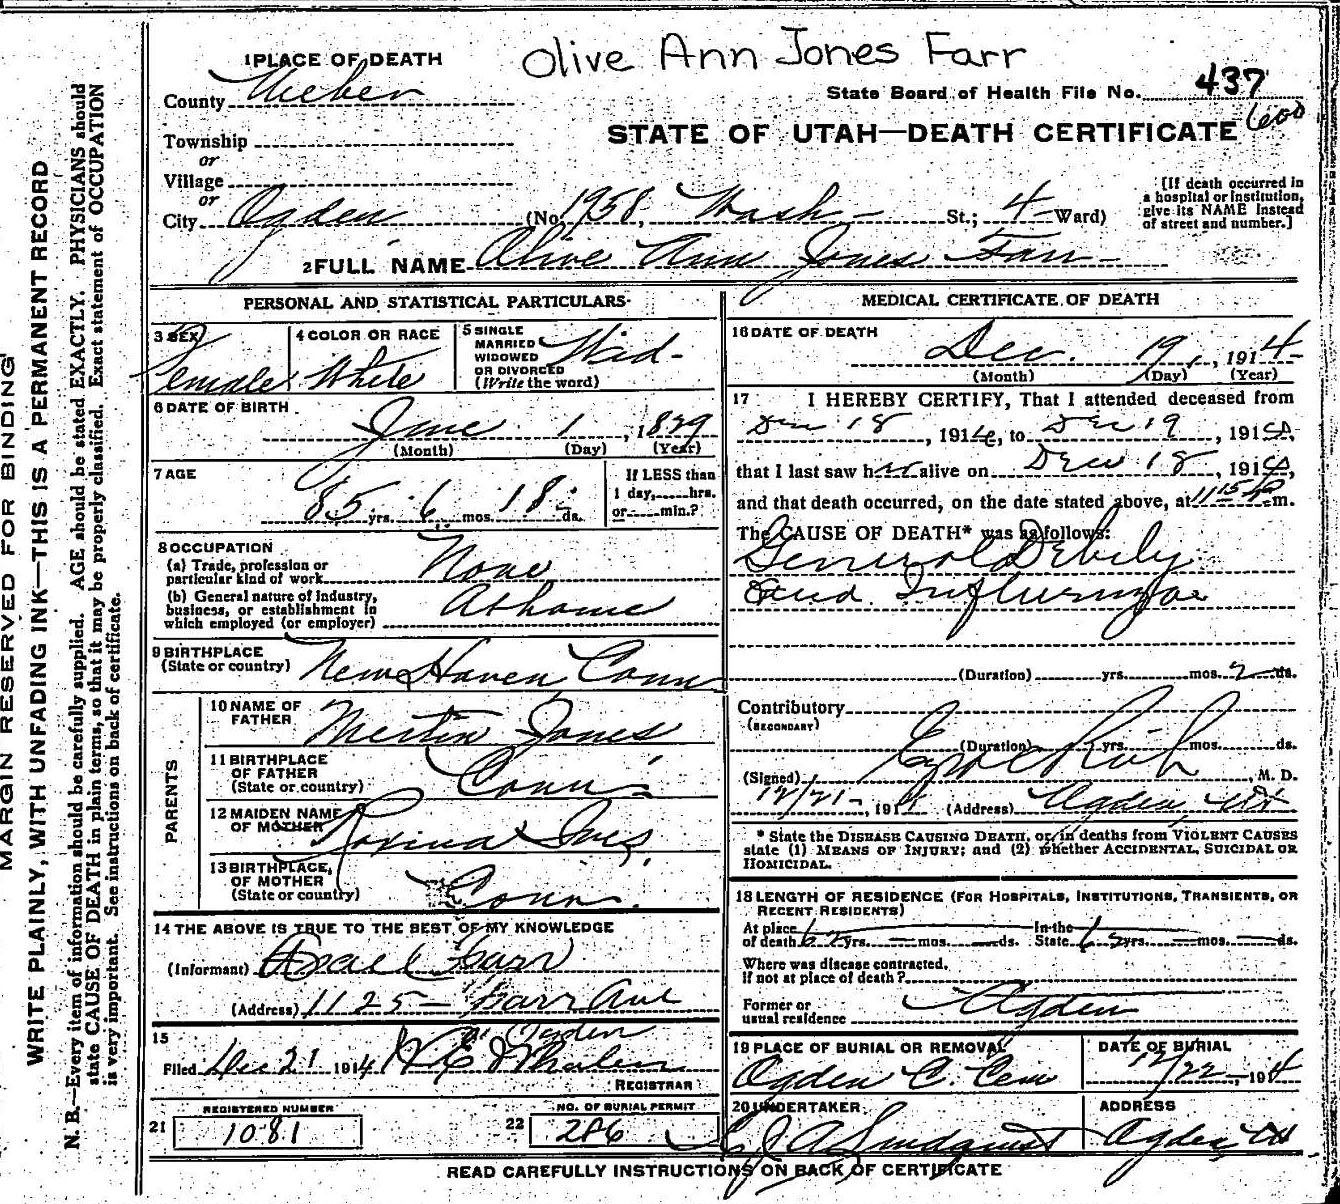 Olive Ann Jones Farr
1 PLACE OF DEATH
County Weber
State Board of Health File No. 437
600
STATE OF UTAH—DEATH CERTIFICATE
Township
or
Village
or
City Ogden (No. 1958, Wash- St.; 4 Ward)
[If death occurred in a hospital or institution, give its NAME instead of street and number.]
2 FULL NAME Olive Ann Jones Farr
PERSONAL AND STATISTICAL PARTICULARS
3 SEX Female
4 COLOR OR RACE White
5 SINGLE MARRIED WIDOWED OR DIVORCED (Write the word) Wid-
6 DATE OF BIRTH
June 1, 1829
(Month) (Day) (Year)
7 AGE
85 yrs. 6 mos. 18 ds.
If LESS than 1 day, hrs. or min.?
8 OCCUPATION
(a) Trade, profession or particular kind of work None
(b) General nature of industry, business, or establishment in which employed (or employer) At home
9 BIRTHPLACE (State or country) New Haven Conn
PARENTS
10 NAME OF FATHER Jones
11 BIRTHPLACE OF FATHER (State or country) Conn.
12 MAIDEN NAME OF MOTHER Rosina Ives
13 BIRTHPLACE OF MOTHER (State or country) Conn.
14 THE ABOVE IS TRUE TO THE BEST OF MY KNOWLEDGE
(Informant) Farr
(Address) 1125- Farr Ave
Ogden
15
Filed Dec 21 1914
REGISTRAR
REGISTERED NUMBER
21 1081
NO. OF BURIAL PERMIT
22 286
MEDICAL CERTIFICATE OF DEATH
16 DATE OF DEATH
Dec. 19, 1914
(Month) (Day) (Year)
17 I HEREBY CERTIFY, That I attended deceased from
Dec 18, 1914, to Dec 19, 1914,
that I last saw her alive on Dec 18, 1914,
and that death occurred, on the date stated above, at 11 15 m.
The CAUSE OF DEATH* was as follows:
General Debily
and Influenza
(Duration) yrs. mos. 2 ds.
Contributory
(SECONDARY)
(Duration) yrs. mos. ds.
(Signed) Rich, M. D.
12/21-, 1914 (Address) Ogden Ut
* State the DISEASE CAUSING DEATH, or, in deaths from VIOLENT CAUSES
state (1) MEANS OF INJURY; and (2) whether ACCIDENTAL, SUICIDAL OR
HOMICIDAL.
18 LENGTH OF RESIDENCE (FOR HOSPITALS, INSTITUTIONS, TRANSIENTS, OR
RECENT RESIDENTS)
At place of death yrs. mos. ds. In the State yrs. mos. ds.
Where was disease contracted,
if not at place of death?
Former or usual residence Ogden
19 PLACE OF BURIAL OR REMOVAL
Ogden C. Cem
DATE OF BURIAL
12/22-, 1914
20 UNDERTAKER
Lindquist
ADDRESS
Ogden Ut
READ CAREFULLY INSTRUCTIONS ON BACK OF CERTIFICATE
MARGIN RESERVED FOR BINDING
WRITE PLAINLY, WITH UNFADING INK—THIS IS A PERMANENT RECORD
N. B.—Every item of information should be carefully supplied. AGE should be stated EXACTLY. PHYSICIANS should
state CAUSE OF DEATH in plain terms, so that it may be properly classified. Exact statement of OCCUPATION
is very important. See instructions on back of certificate.